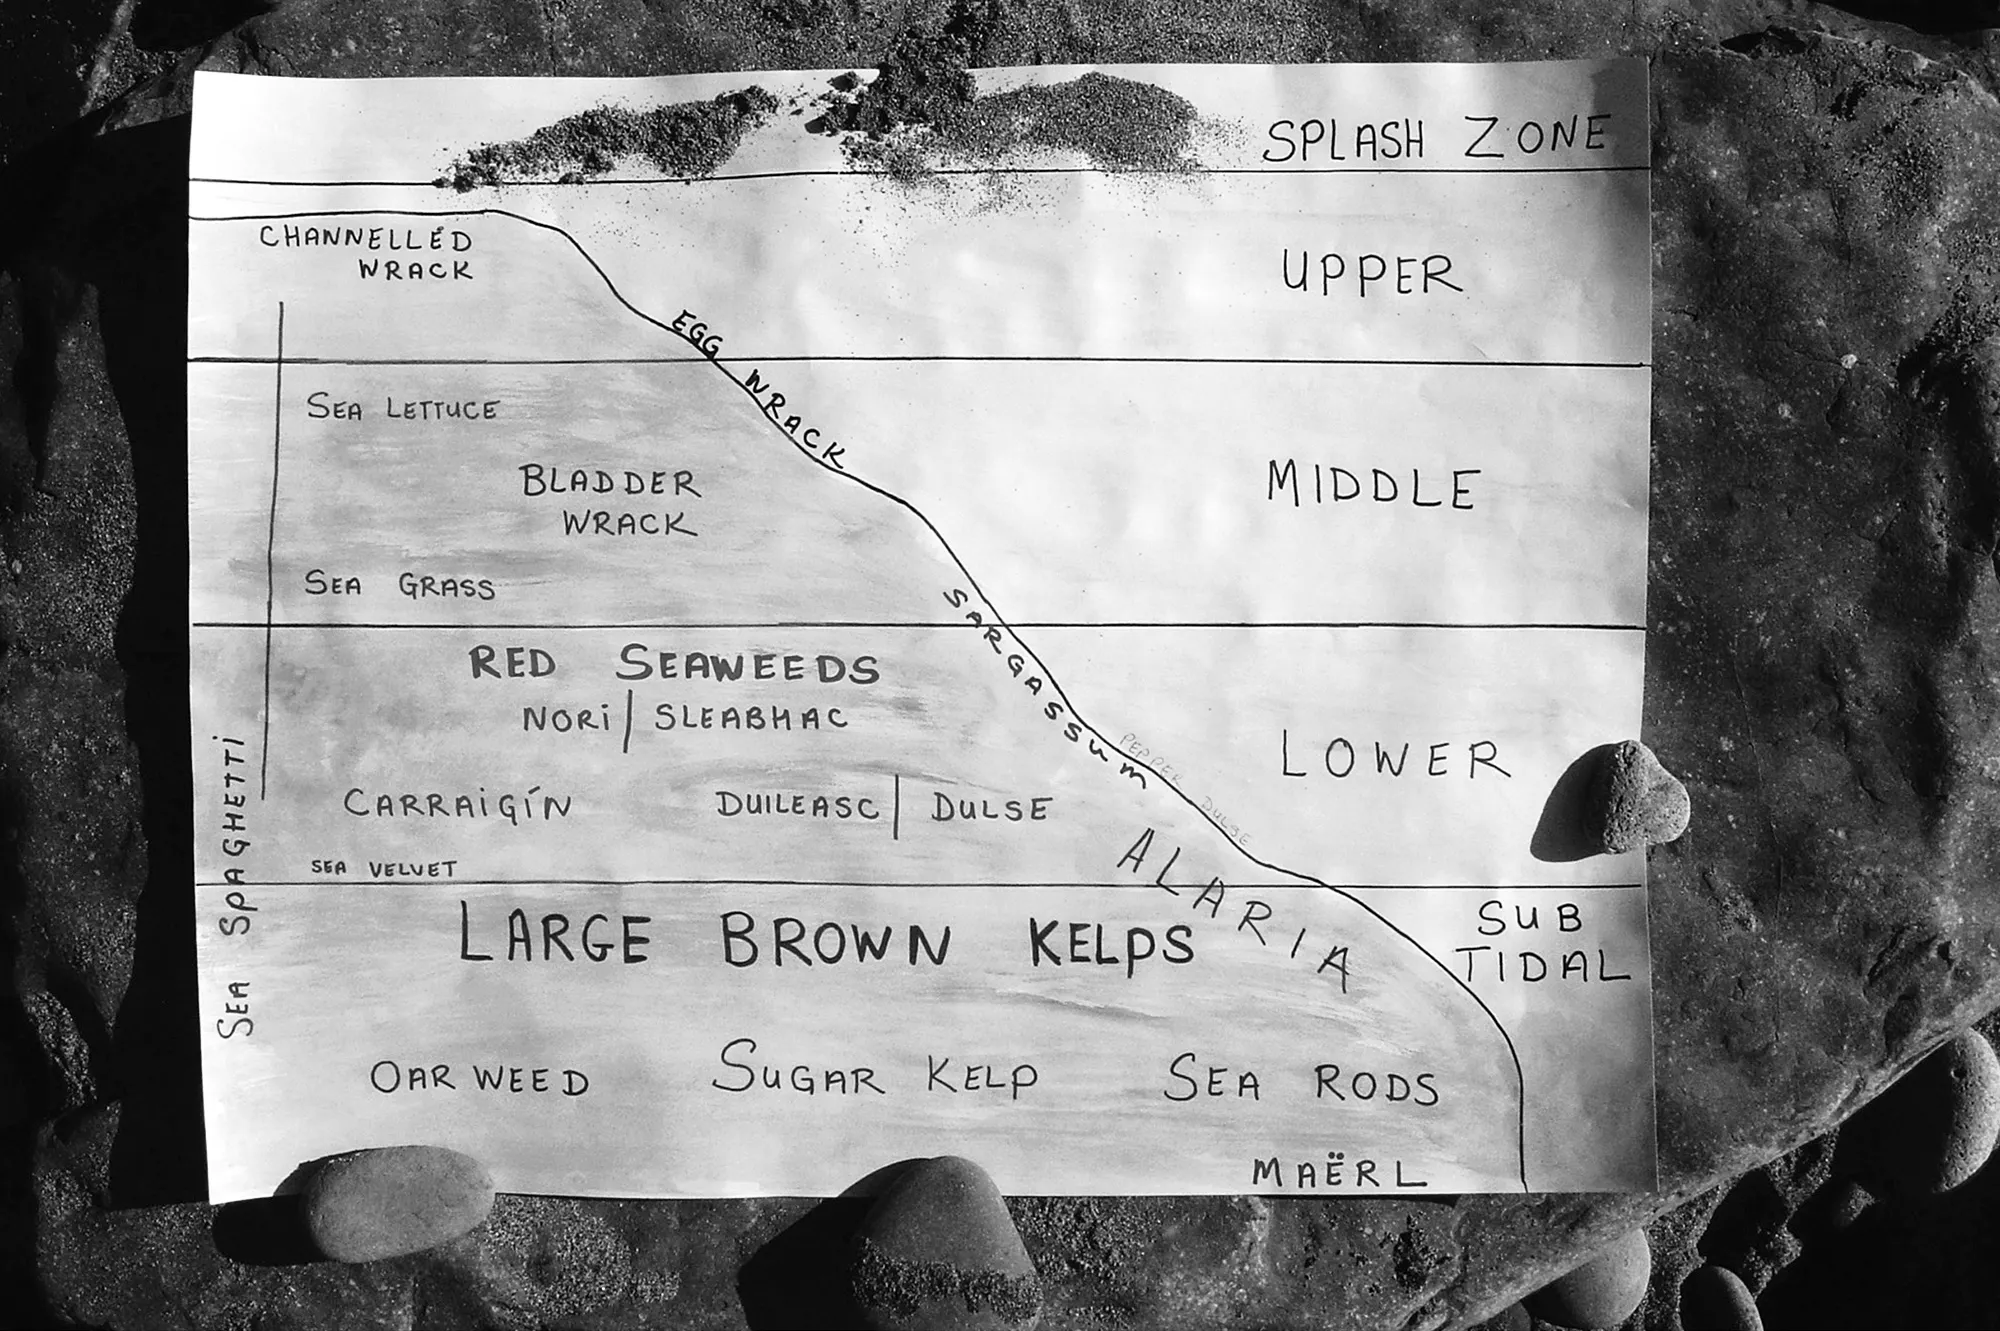 SPLASH ZONE
CHANNELLED
WRACK
UPPER
EGG WRACK
SEA LETTUCE
BLADDER
WRACK
MIDDLE
SEA GRASS
SARGASSUM
RED SEAWEEDS
NORI | SLEABHAC
PEPPER DULSE
LOWER
CARRAIGÍN
DUILEASC | DULSE
ALARIA
SEA VELVET
SEA SPAGHETTI
LARGE BROWN KELPS
SUB
TIDAL
OARWEED
SUGAR KELP
SEA RODS
MAËRL